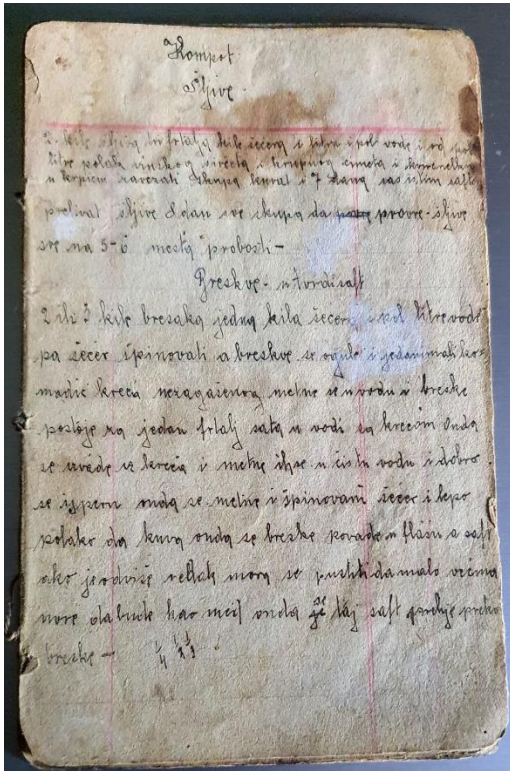 Kompot
Šljive.
2. kile šljiva tri frtalja kile šećera i litru i pol vode i od pol
litre polak vinskog sirćeta i krupnog cimeta i
u krpicu zavezati skupa kuvat i 7 dana sas istim saftom
prelivat šljive 8 dan sve skupa da provre - šljive
se na 5-6 mesta probosti -
Breskve - u tvrdi saft
2 ili 3 kile bresaka jedna kila šećera i pol litre vode
pa šećer špinovati a breskve se ogule i jedan mali ko-
madić kreča nezagašenog metne se u vodu i breske
postoje za jedan frtalj sata u vodi sa krečom onda
se izvade iz kreča i metne ih se u čistu vodu i dobro
se isperu onda se metne i špinovani šećer i lepo
polako da kuva onda se breske povade u flašu a saft
ako je odviše redak mora se pustiti da malo većma
uvre da bude kao med onda se taj saft prelije preko
breske -